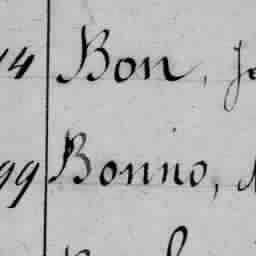 14 Bon, Jo
99 Bonino,